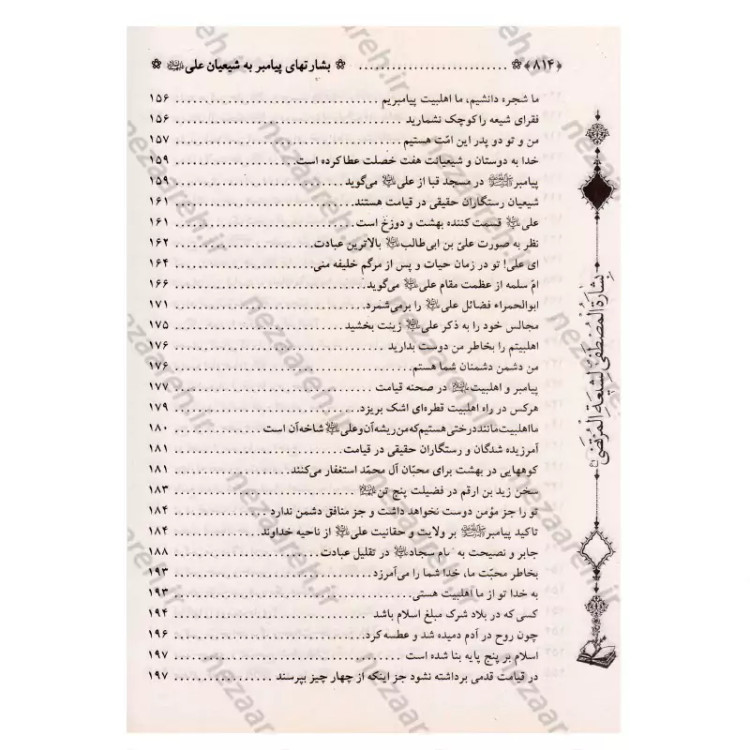 ﴿۸۱۴﴾ ............................ بشارتهای پیامبر به شیعیان علی
ما شجره دانشیم، ما اهلبیت پیامبریم ............ ۱۵۶
فقرای شیعه را کوچک نشمارید ............ ۱۵۶
من و تو دو پدر این امّت هستیم ............ ۱۵۷
خدا به دوستان و شیعیانت هفت خصلت عطا کرده است ............ ۱۵۹
پیامبر ﷺ در مسجد قبا از علی می‌گوید ............ ۱۵۹
شیعیان رستگاران حقیقی در قیامت هستند ............ ۱۶۱
علی قسمت کننده بهشت و دوزخ است ............ ۱۶۱
نظر به صورت علیّ بن ابی‌طالب بالاترین عبادت ............ ۱۶۲
ای علی! تو در زمان حیات و پس از مرگم خلیفه منی ............ ۱۶۴
امّ سلمه از عظمت مقام علی می‌گوید ............ ۱۶۶
ابوالحمراء فضائل علی را برمی‌شمرد ............ ۱۷۱
مجالس خود را به ذکر علی زینت بخشید ............ ۱۷۵
اهلبیتم را بخاطر من دوست بدارید ............ ۱۷۶
من دشمن دشمنان شما هستم ............ ۱۷۶
پیامبر و اهلبیت در صحنه قیامت ............ ۱۷۷
هرکس در راه اهلبیت قطره‌ای اشک بریزد ............ ۱۷۹
ما اهلبیت مانند درختی هستیم که من ریشه آن و علی شاخه آن است ............ ۱۸۰
آمرزیده شدگان و رستگاران حقیقی در قیامت ............ ۱۸۱
کوههایی در بهشت برای محبّان آل محمّد استغفار می‌کنند ............ ۱۸۱
سخن زید بن ارقم در فضیلت پنج تن ............ ۱۸۳
تو را جز مؤمن دوست نخواهد داشت و جز منافق دشمن ندارد ............ ۱۸۴
تاکید پیامبر ﷺ بر ولایت و حقانیت علی از ناحیه خداوند ............ ۱۸۴
جابر و نصیحت به امام سجاد در تقلیل عبادت ............ ۱۸۸
بخاطر محبّت ما، خدا شما را می‌آمرزد ............ ۱۹۳
به خدا تو از ما اهلبیت هستی ............ ۱۹۳
کسی که در بلاد شرک مبلغ اسلام باشد ............ ۱۹۴
چون روح در آدم دمیده شد و عطسه کرد ............ ۱۹۶
اسلام بر پنج پایه بنا شده است ............ ۱۹۷
در قیامت قدمی برداشته نشود جز اینکه از چهار چیز بپرسند ............ ۱۹۷
بِشارَةُ المُصْطَفی لِشیعَةِ المُرْتَضی
nezaareh.ir